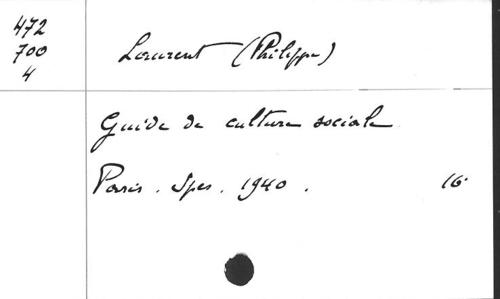 472
700
4
Laurent (Philippe)
Guide de culture sociale
Paris. Spes. 1940. 16°